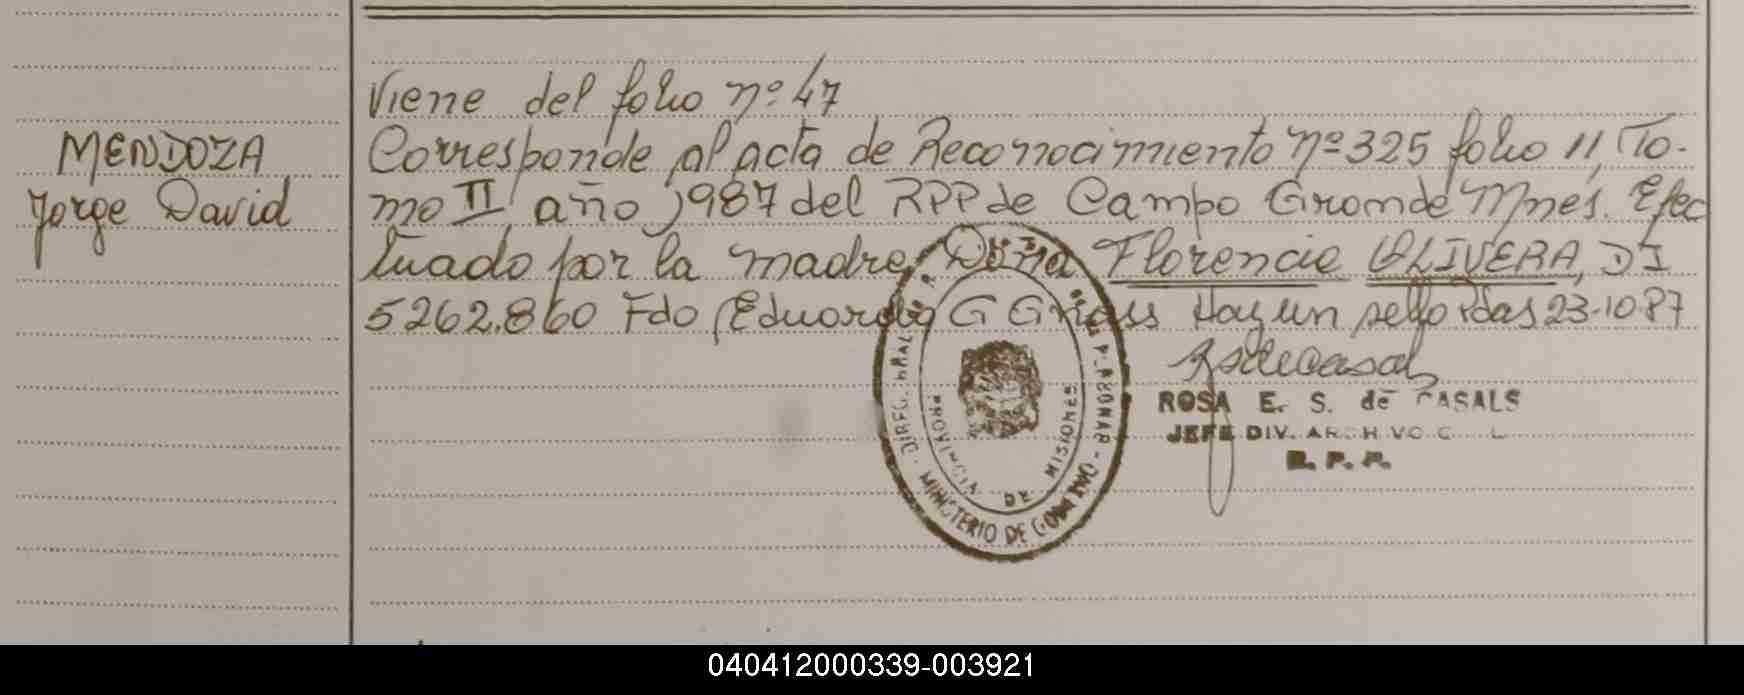 Viene del folio nº 47
MENDOZA
Jorge David
Corresponde al acta de Reconocimiento nº 325 folio 11, To-
mo II año 1987 del RPP de Campo Grande Mnes. Efec
tuado por la madre Doña Florencia OLIVERA, DI
5262.860 Fdo Eduardo G Gross Hay un sello Pdas 23-10-87
ROSA E. S. de CASALS
JEFE DIV. ARCHIVO
R. P. P.
PROVINCIA DE MISIONES
MINISTERIO DE GOBIERNO
040412000339-003921